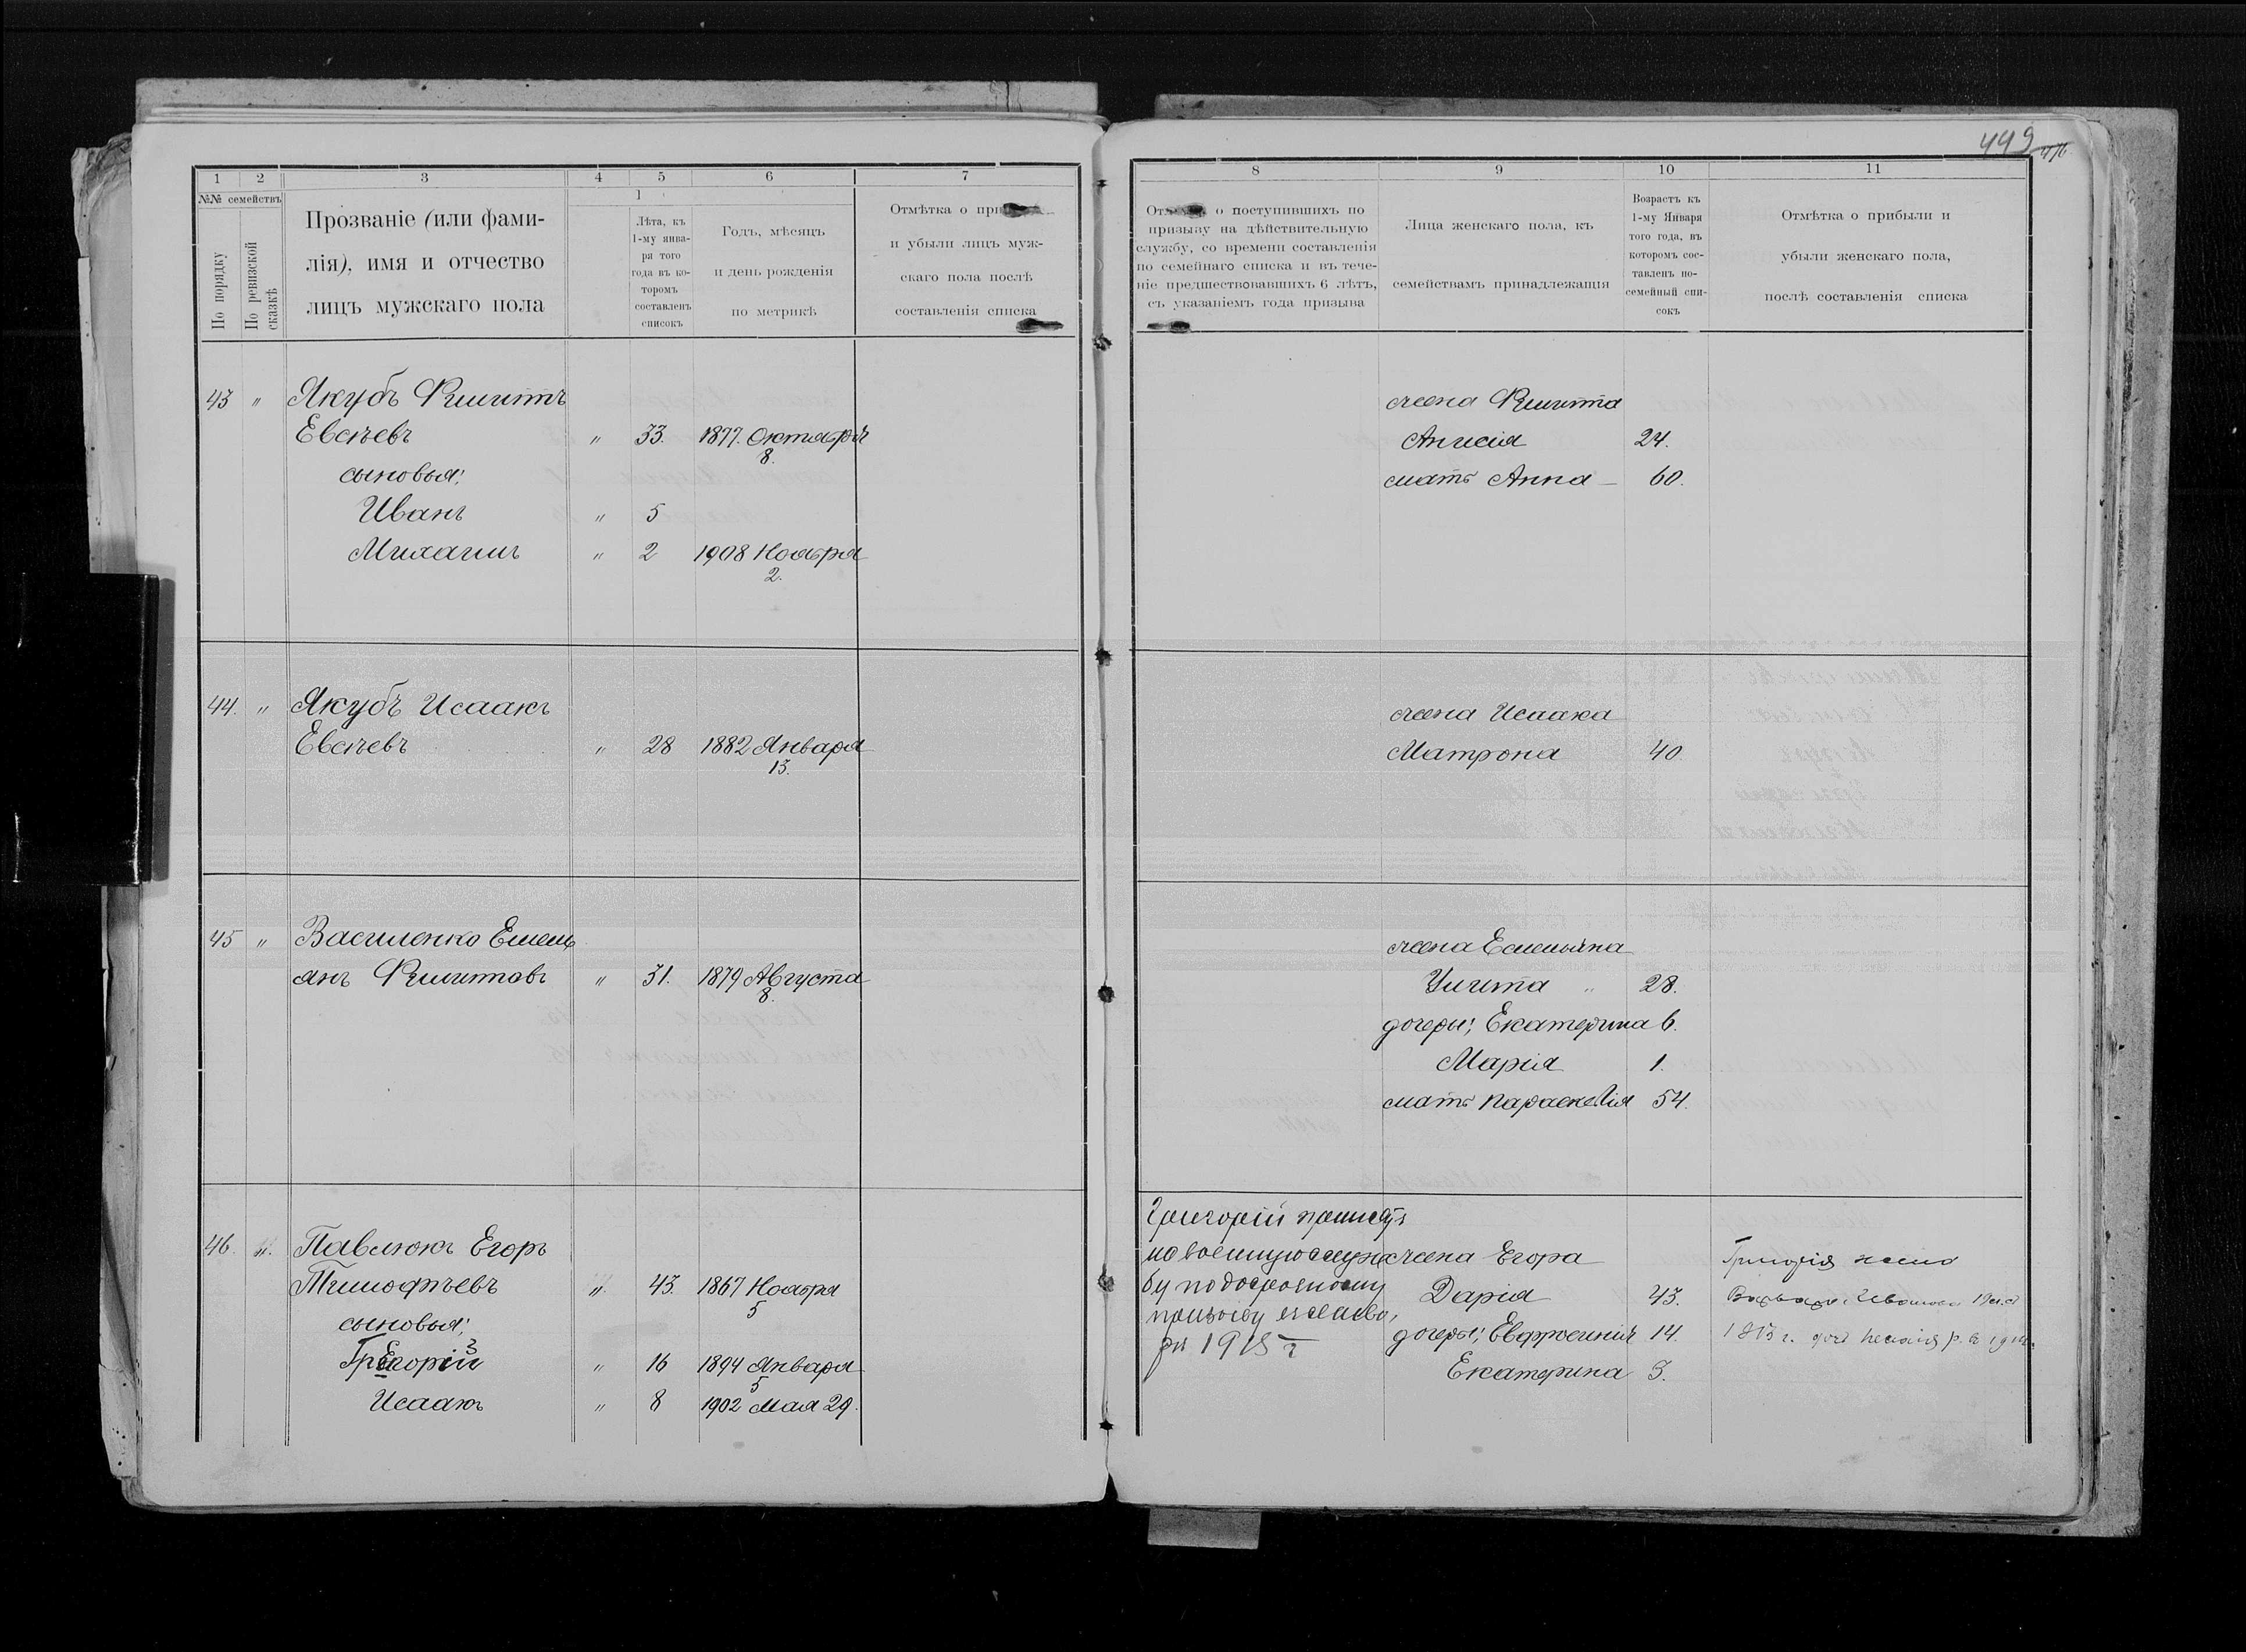 449
1 2 3 4 5 6 7
№№ семействъ
По порядку
По ревизской сказкѣ
Прозваніе (или фами-
лія), имя и отчество
лицъ мужскаго пола
1
Лѣта, къ
1-му янва-
ря того
года въ ко-
торомъ
составленъ
списокъ
Годъ, мѣсяцъ
и день рожденія
по метрикѣ
Отмѣтка о
и убыли лицъ муж-
скаго пола послѣ
составленія списка
43 " Якубъ Филиптъ
Евсѣевъ " 33. 1877. Октября
8.
сыновья:
Иванъ " 5
Михаилъ " 2 1908 Ноября
2.
44. " Якубъ Исаакъ
Евсѣевъ " 28 1882 Января
13.
45 " Василенко Емель
янъ Филиптовъ " 31. 1879 Августа
8.
46. ". Павлюкъ Егоръ
Тимофѣевъ ". 43. 1867 Ноября
5
сыновья:
Григорій " 16 1894 Января
5
Исаакъ " 8 1902 Мая 29.
8 9 10 11
о поступившихъ по
призыву на дѣйствительную
службу, со времени составленія
по семейнаго списка и въ тече-
ніе предшествовавшихъ 6 лѣтъ,
съ указаніемъ года призыва
Лица женскаго пола, къ
семействамъ принадлежащія
Возрастъ къ
1-му Января
того года, въ
которомъ сос-
тавленъ по-
семейный спи-
сокъ
Отмѣтка о прибыли и
убыли женскаго пола,
послѣ составленія списка
жена Филипта
Анисія 24.
мать Анна — 60.
жена Исаака
Матрона 40.
жена Емельяна
Улита " 28.
дочери: Екатерина 6.
Марія 1.
мать Параскевія 54.
Григорій принятъ
на военную служ
бу по досрочному
призыву
1915 г
жена Егора
Дарія 43.
дочери: Евфросинія 14.
Екатерина 3.
Григорія жена
Варвара Иванова